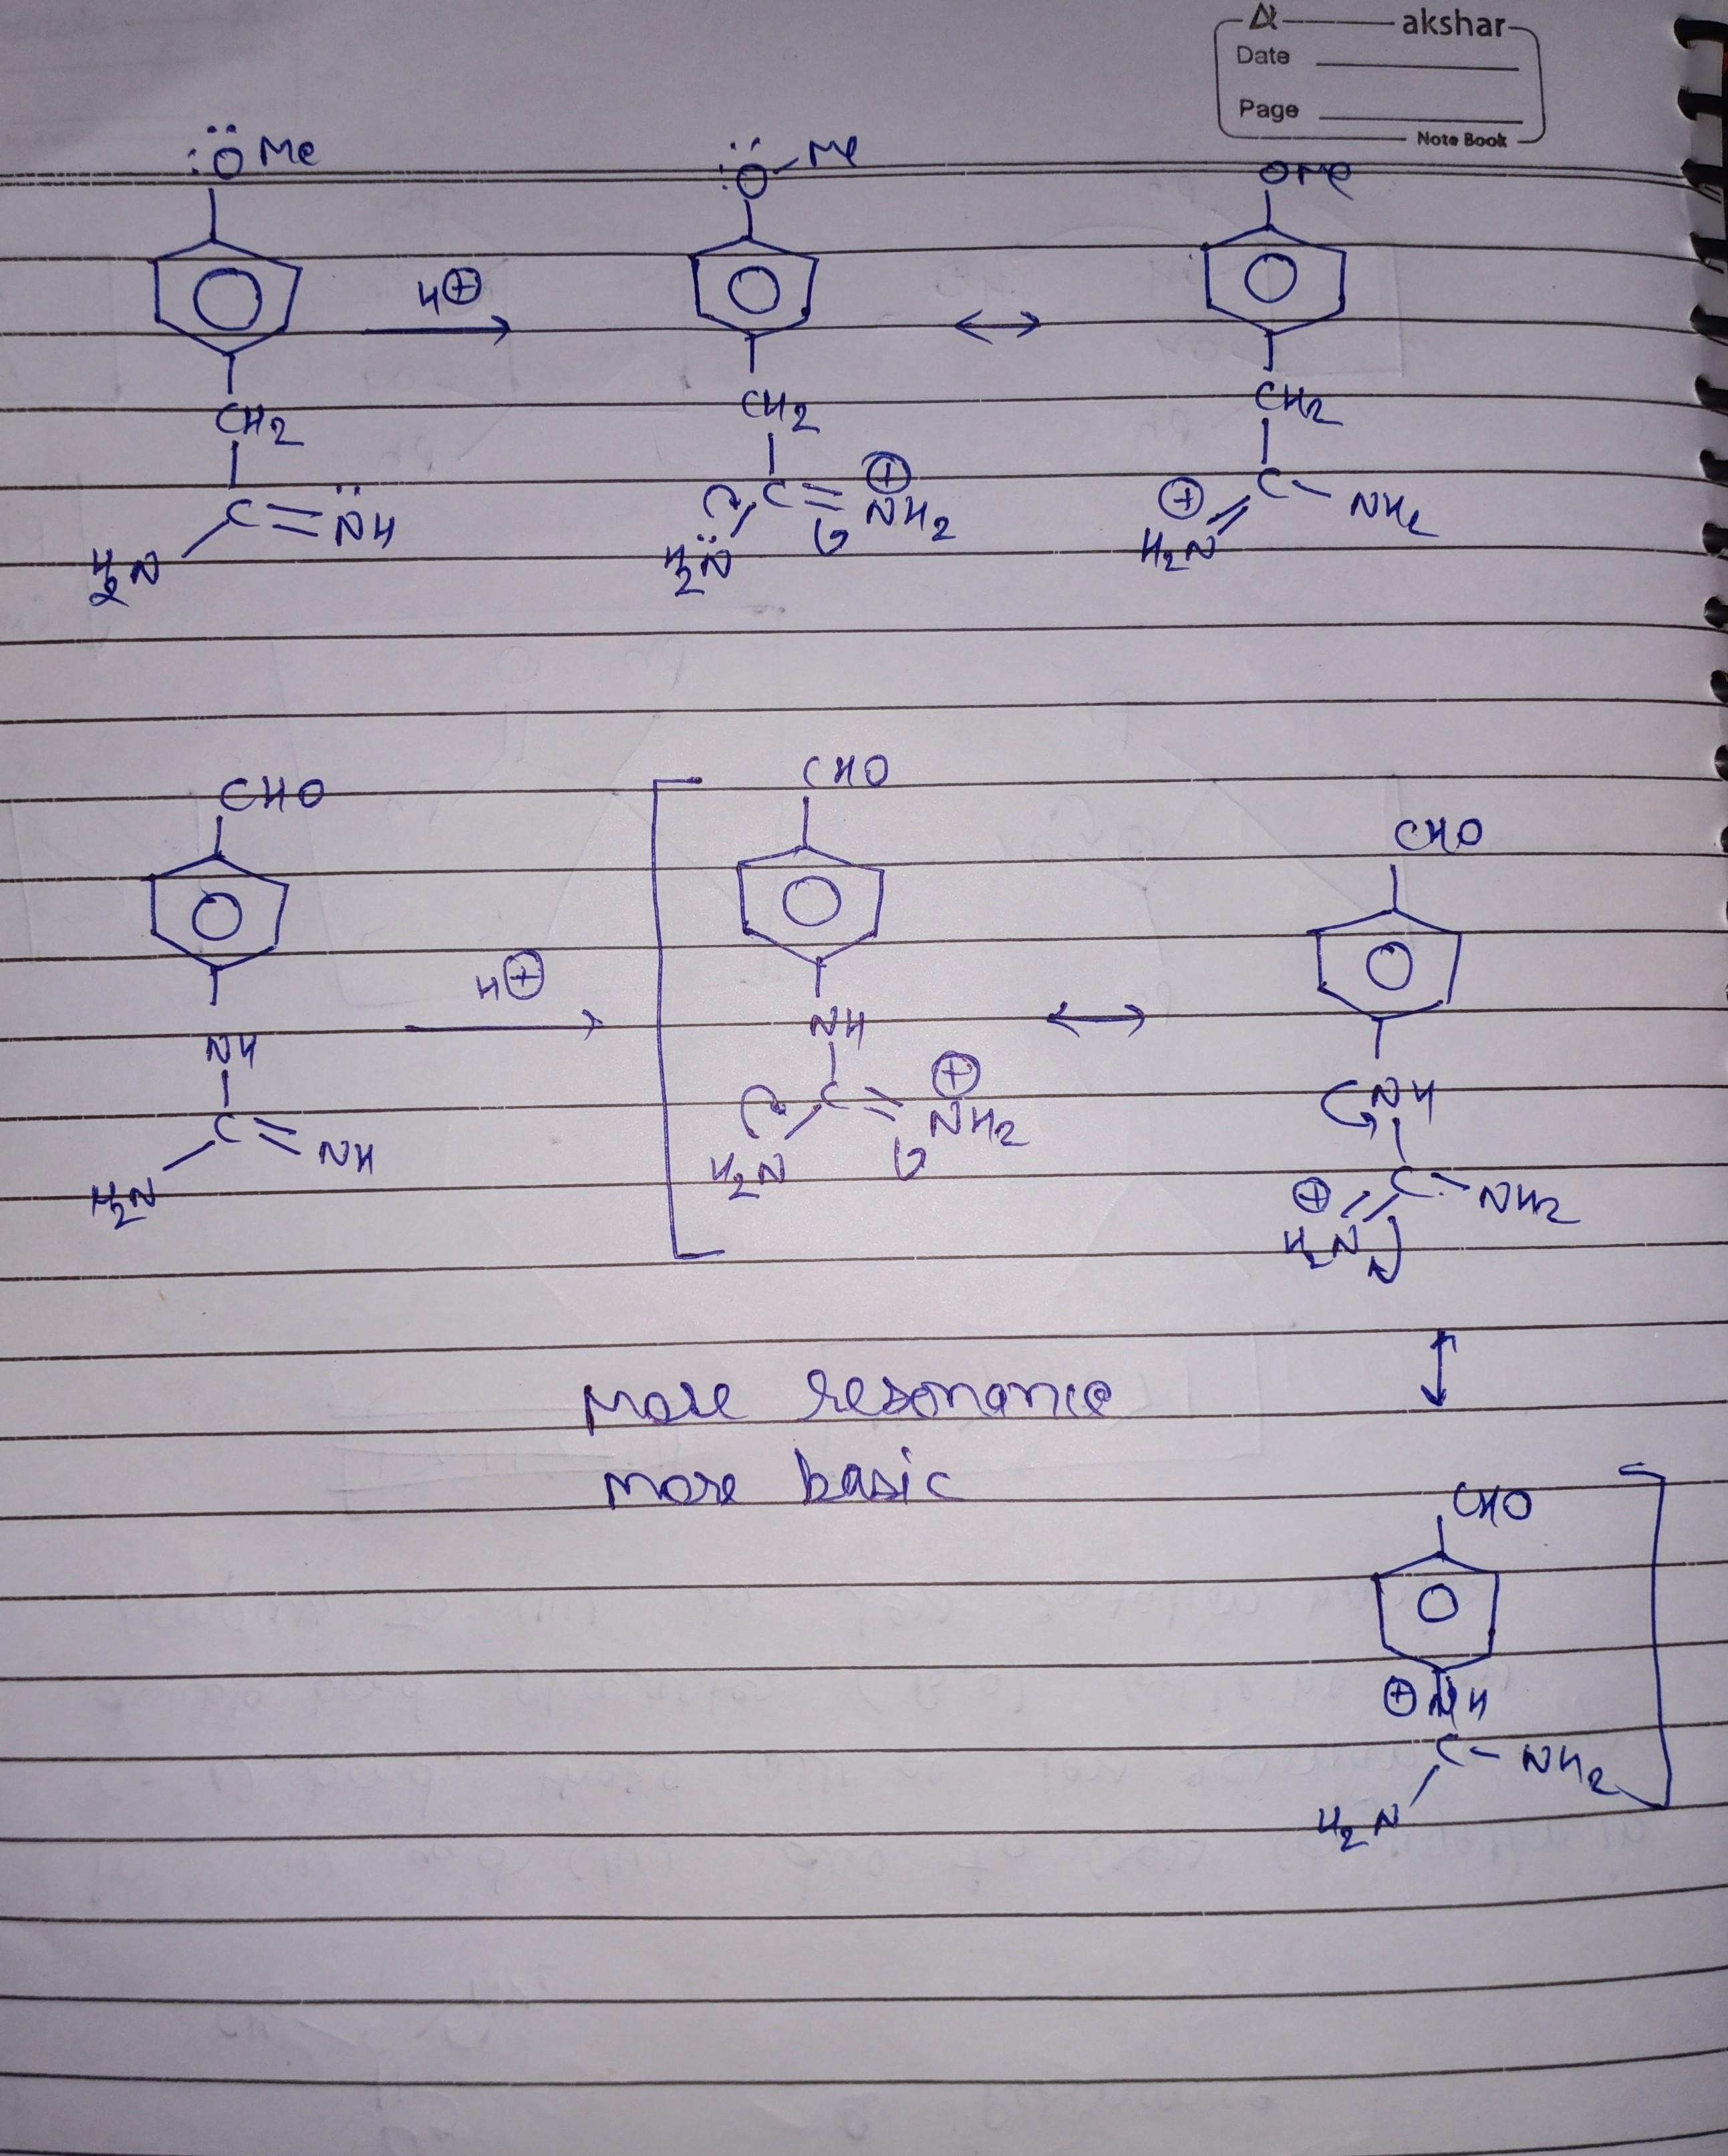 akshar
Date
Page
Note Book
:ÖMe
:Ö-Me
OMe
H⊕
CH2
CH2
CH2
C=N̈H
C=NH2
⊕
⊕
C-NH2
H2N
H2N̈
H2N
CHO
CHO
CHO
H⊕
NH
NH
NH
C=NH
C=NH2
⊕
⊕
C-NH2
H2N
H2N
H2N
More resonance
more basic
CHO
⊕NH
C-NH2
H2N